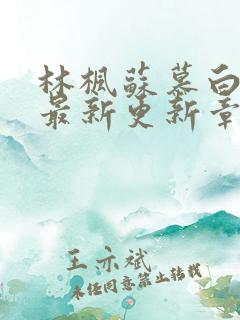 林楓蘇慕白
最新更新章
王亦斌
未经同意禁止转载